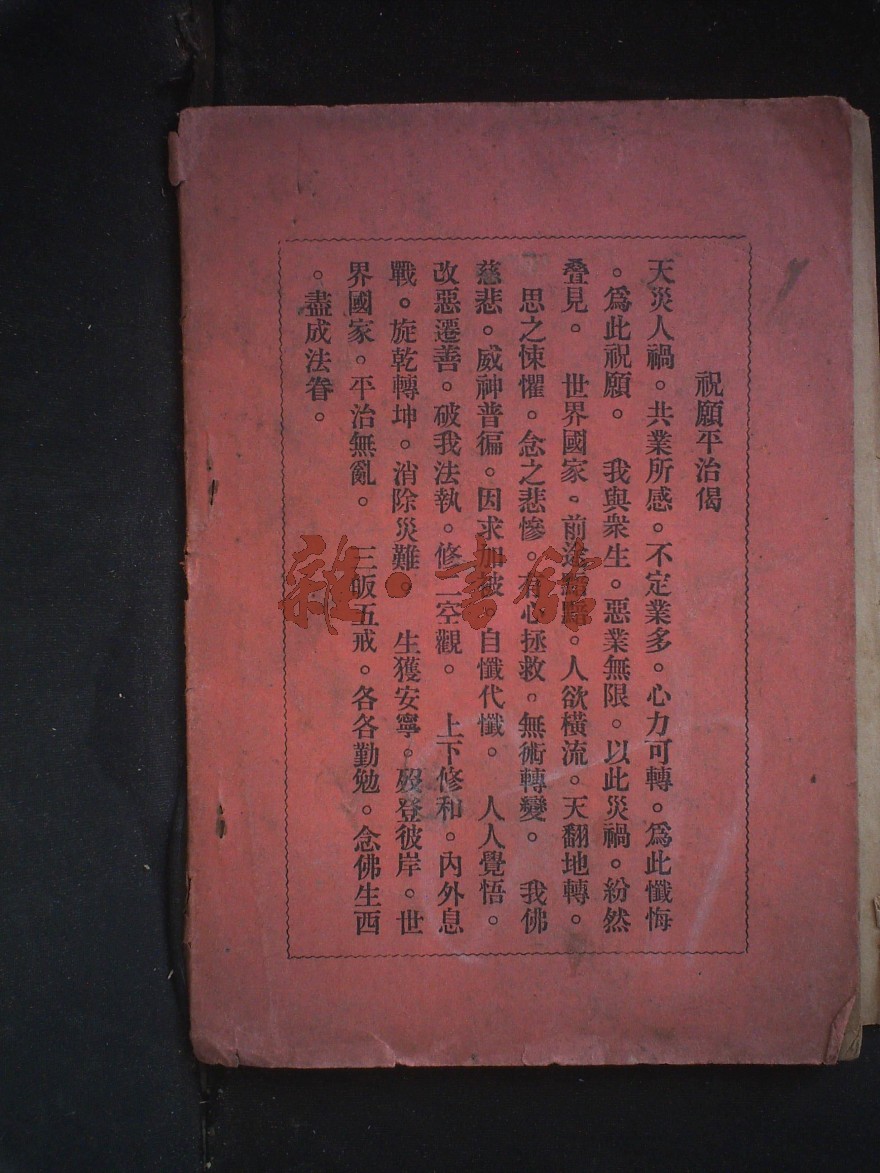 祝願平治偈
天災人禍。共業所感。不定業多。心力可轉。爲此懺悔
。爲此祝願。　我與衆生。惡業無限。以此災禍。紛然
叠見。　世界國家。前途黯黯。人欲橫流。天翻地轉。
　思之悚懼。念之悲慘。有心拯救。無術轉變。　我佛
慈悲。威神普徧。因求加被。自懺代懺。　人人覺悟。
改惡遷善。破我法執。修二空觀。　上下修和。內外息
戰。旋乾轉坤。消除災難。　生獲安寧。歿登彼岸。世
界國家。平治無亂。　三皈五戒。各各勤勉。念佛生西
。盡成法眷。
雜·書館